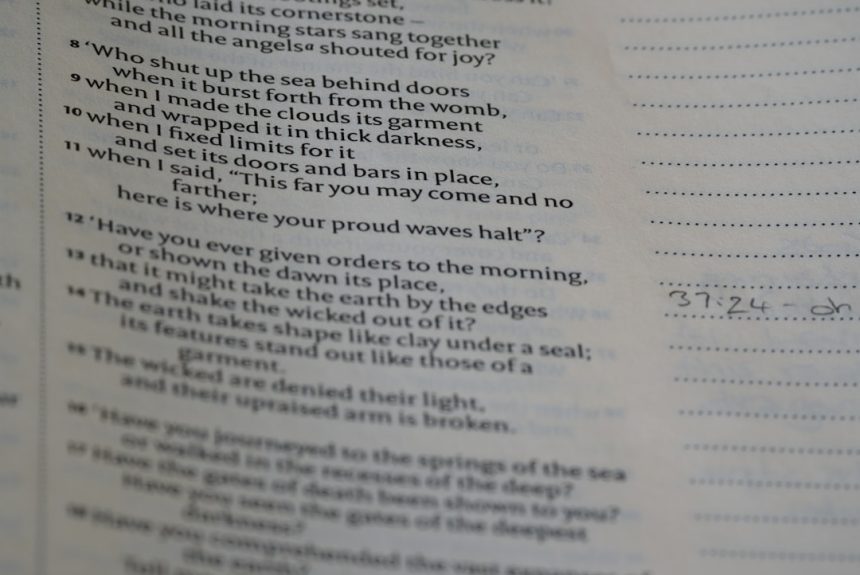 laid its cornerstone –
while the morning stars sang together
and all the angelsᵃ shouted for joy?
8 ‘Who shut up the sea behind doors
when it burst forth from the womb,
9 when I made the clouds its garment
and wrapped it in thick darkness,
10 when I fixed limits for it
and set its doors and bars in place,
11 when I said, “This far you may come and no
farther;
here is where your proud waves halt”?
12 ‘Have you ever given orders to the morning,
or shown the dawn its place,
13 that it might take the earth by the edges
and shake the wicked out of it?
14 The earth takes shape like clay under a seal;
its features stand out like those of a
garment.
15 The wicked are denied their light,
and their upraised arm is broken.
16 ‘Have you journeyed to the springs of the sea
or walked in the recesses of the deep?
17 Have the gates of death been shown to you?
Have you seen the gates of the deepest
darkness?
18 Have you comprehended the vast
37:24 –